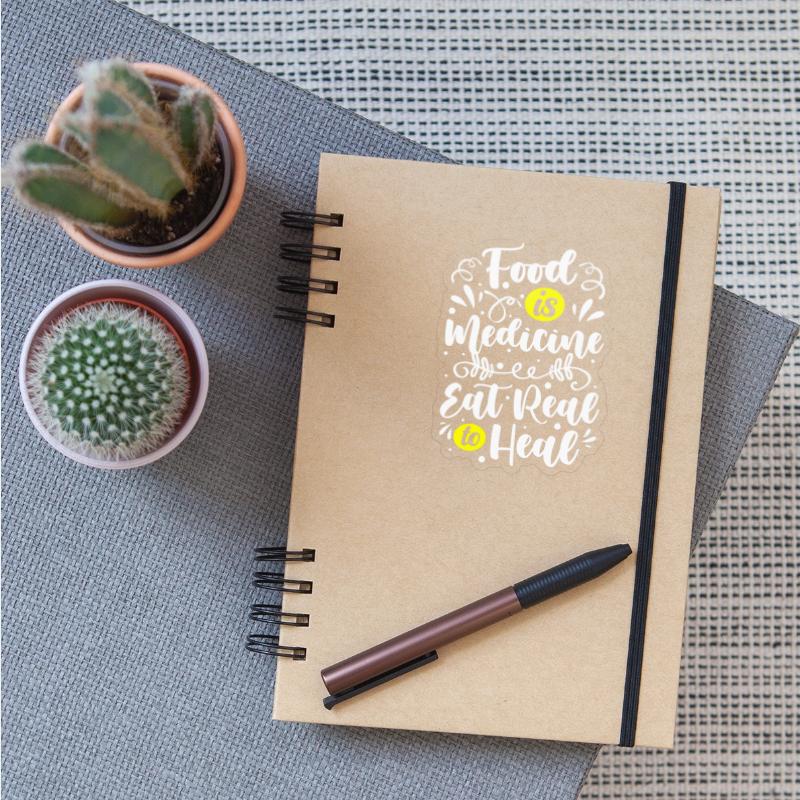 Food
is
Medicine
Eat Real
to Heal